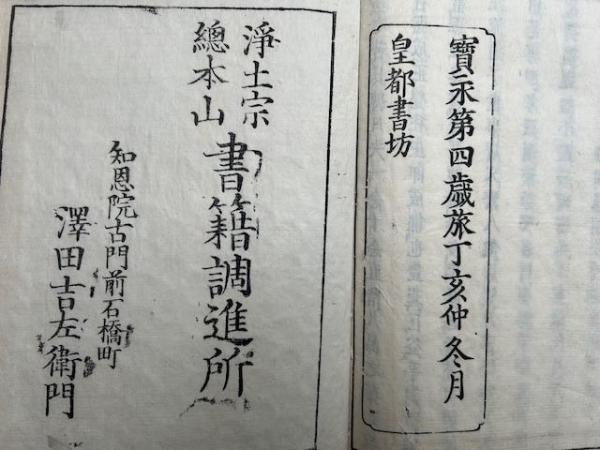 寳永第四歳旅丁亥仲冬月
皇都書坊
淨土宗
總本山
書籍調進所
知恩院古門前石橋町
澤田吉左衛門